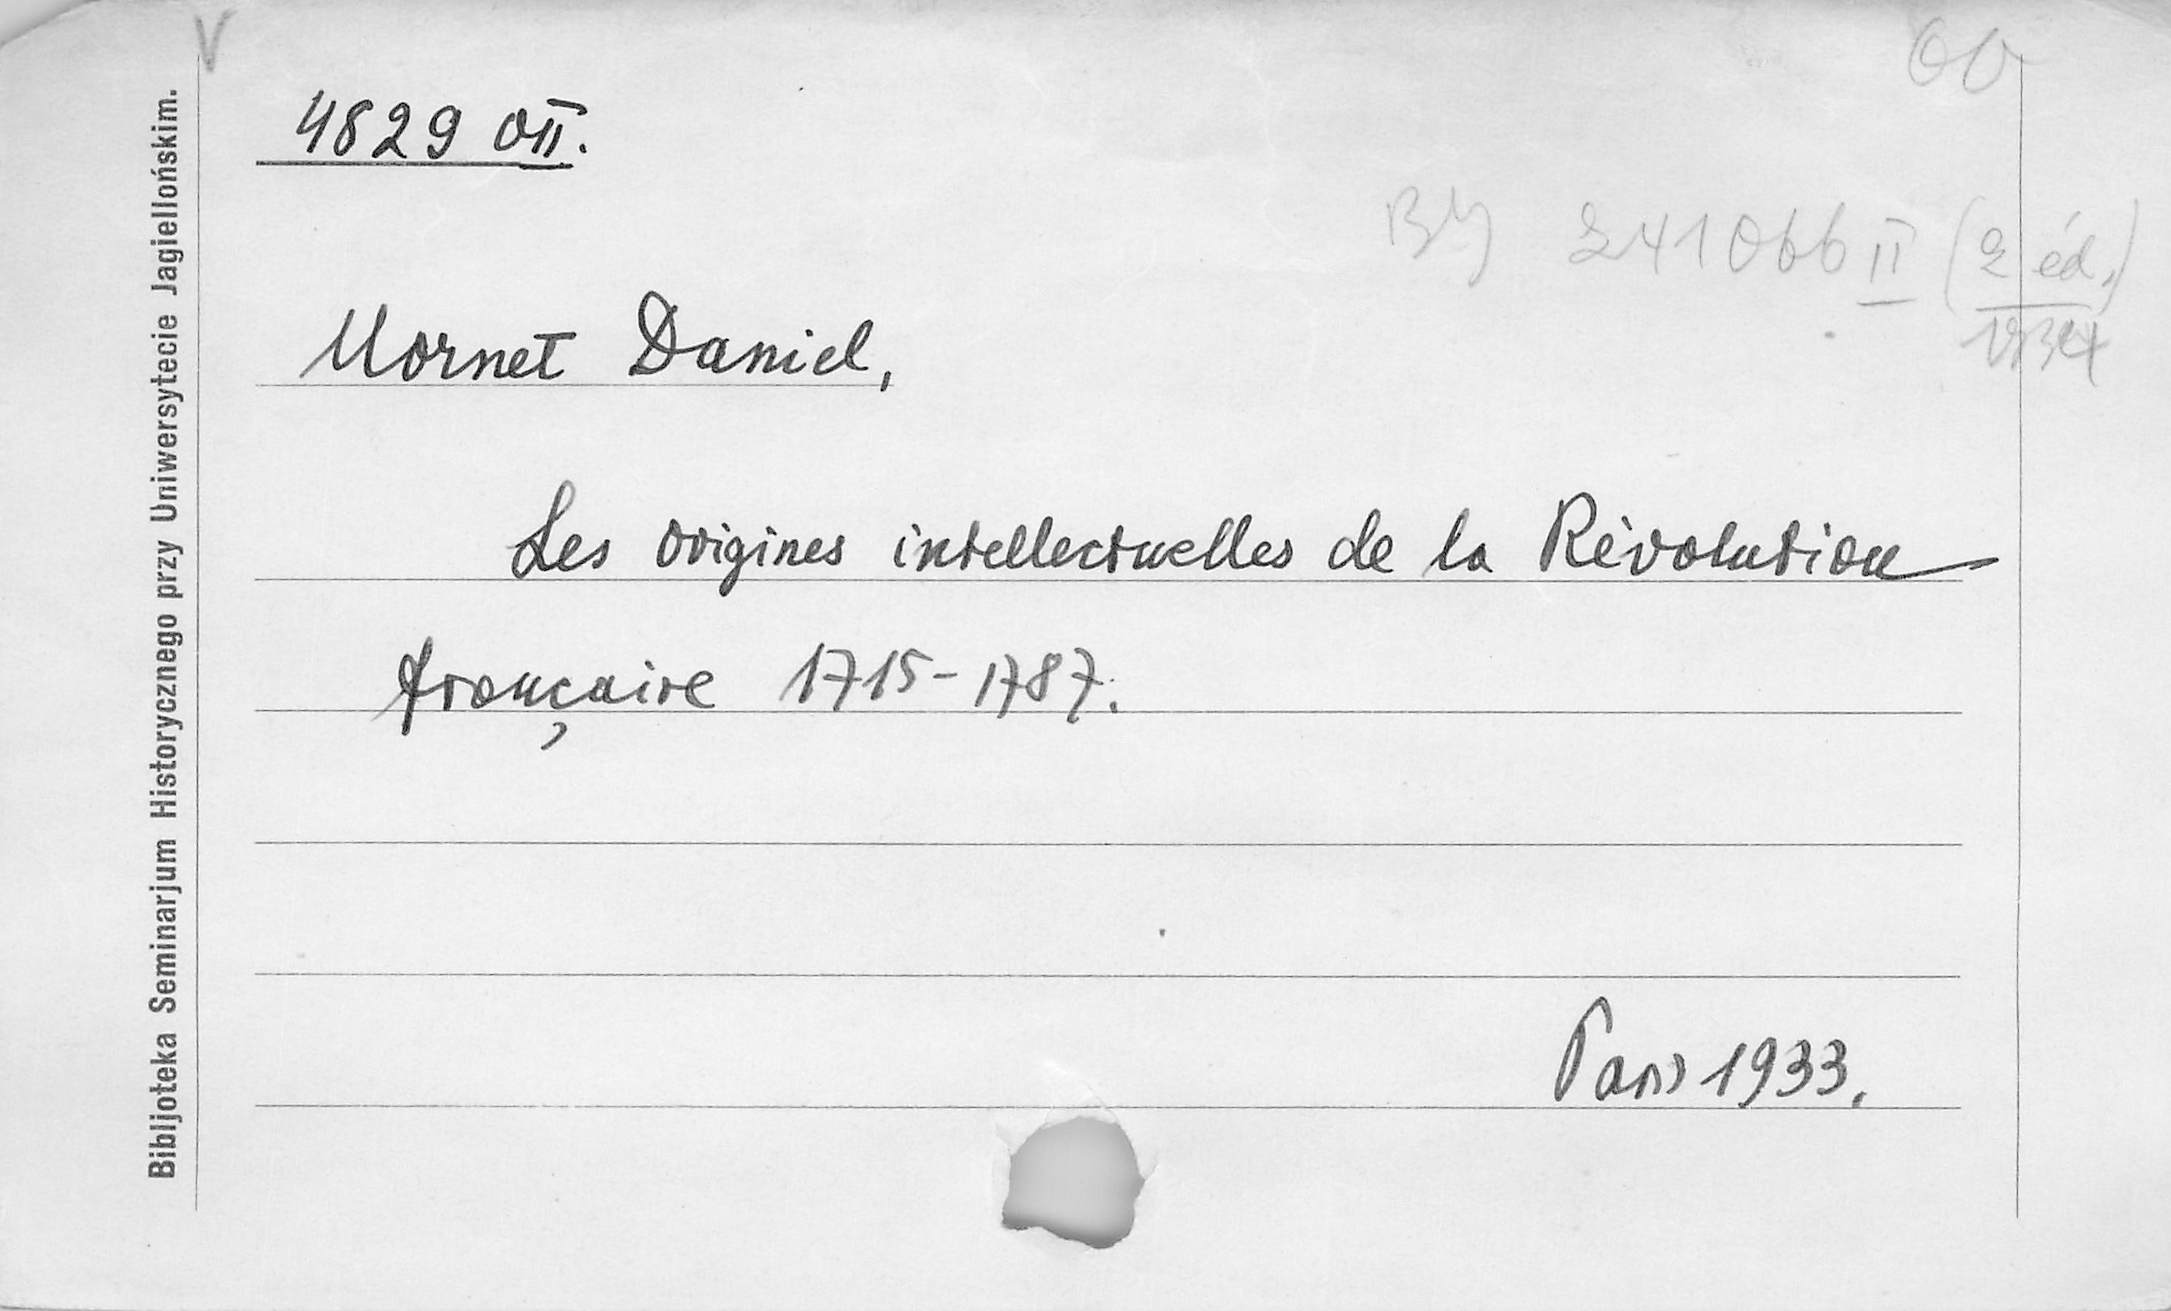 V
4829 OII.
BJ 241066 II (2 éd.)
1934
Mornet Daniel,
Les origines intellectuelles de la Révolution
française 1715-1787.
Paris 1933.
Bibljoteka Seminarjum Historycznego przy Uniwersytecie Jagiellońskim.